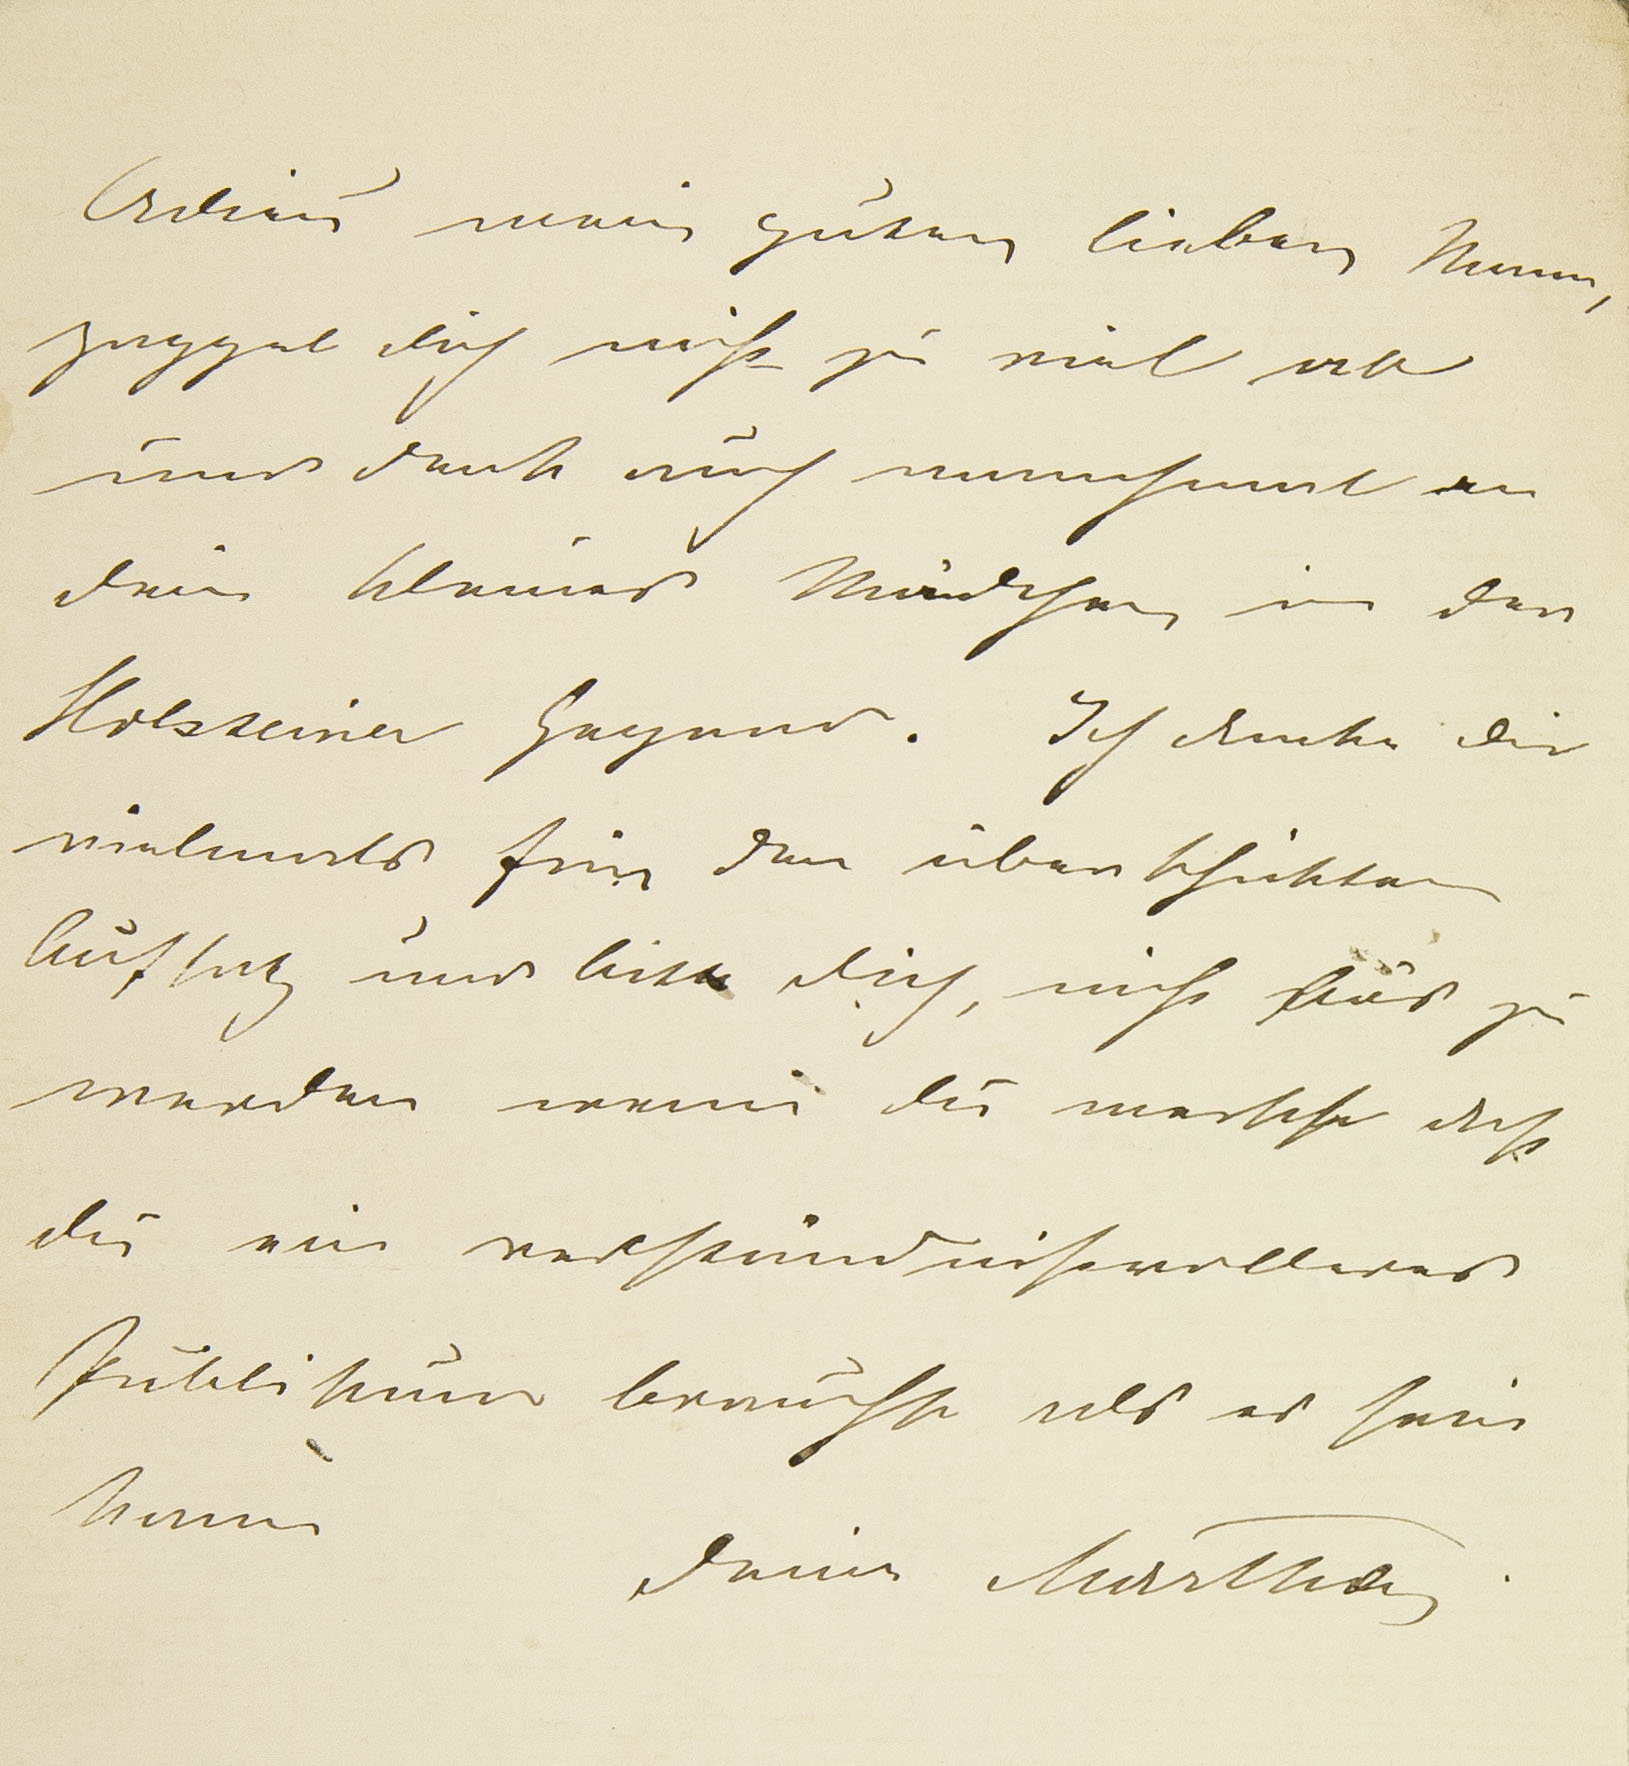 Adieu mein guter lieber Mann,
zappel dich nicht zu viel ab
und denk auch manchmal an
dein kleines Mädchen in der
Holsteiner Gegend. Ich danke dir
vielmals für den überschickten
Aufsatz und bitte dich, nicht bös zu
werden wenn du merkst daß
du ein verständnißvolleres
Publikum brauchst als es sein
kann
deine Martha.